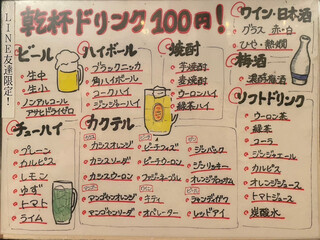 LINE友達限定!
乾杯ドリンク100円!
ビール
生中
生小
ノンアルコール
アサヒドライゼロ
ハイボール
ブラックニッカ
角ハイボール
コークハイ
ジンジャーハイ
焼酎
芋焼酎
麦焼酎
ウーロンハイ
緑茶ハイ
ワイン・日本酒
グラス 赤・白
ひや・熱燗
梅酒
濃醇梅酒
チューハイ
プレーン
カルピス
レモン
ゆず
トマト
ライム
カクテル
カシスオレンジ
カシスソーダ
カシスウーロン
マンゴーオレンジ
マンゴーソーダ
ピーチフィズ
ピーチウーロン
ファジーネーブル
キティ
オペレーター
ジンバック
ジンリッキー
オレンジブロッサム
シャンディガフ
レッドアイ
ソフトドリンク
ウーロン茶
緑茶
コーラ
ジンジャエール
カルピス
オレンジジュース
トマトジュース
炭酸水